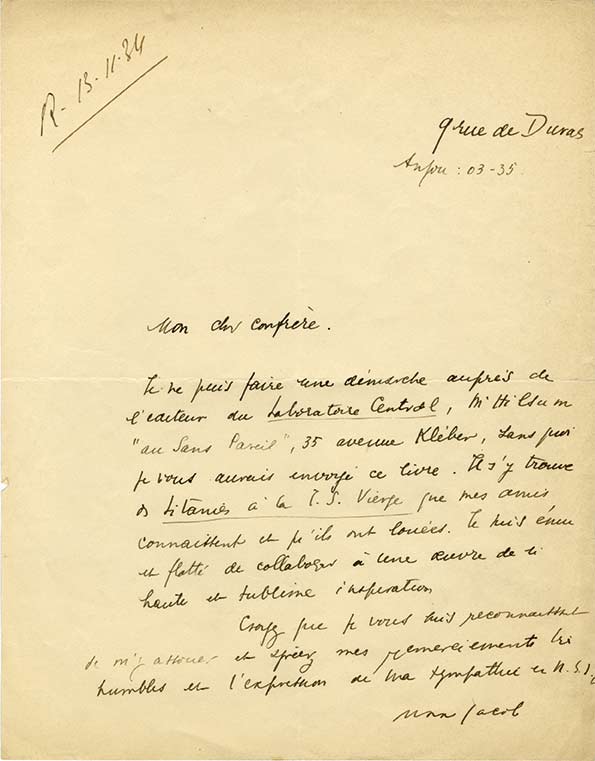 R - 13-11-34
9 rue de Duras
Anjou : 03-35
Mon cher confrère.
Je ne puis faire une démarche auprès de
l'editeur du Laboratoire Central, Mr Hilsum
"au Sans Pareil", 35 avenue Kléber, sans quoi
je vous aurais envoyé ce livre. Il s'y trouve
des Litanies à la T. S. Vierge que mes amis
connaissent et qu'ils ont louées. Je suis ému
et flatté de collaborer à une œuvre de si
haute et sublime inspiration
Croyez que je vous suis reconnaissant
de m'y associer et agréez mes remerciements très
humbles et l'expression de ma sympathie en N.S.J.C
Max Jacob